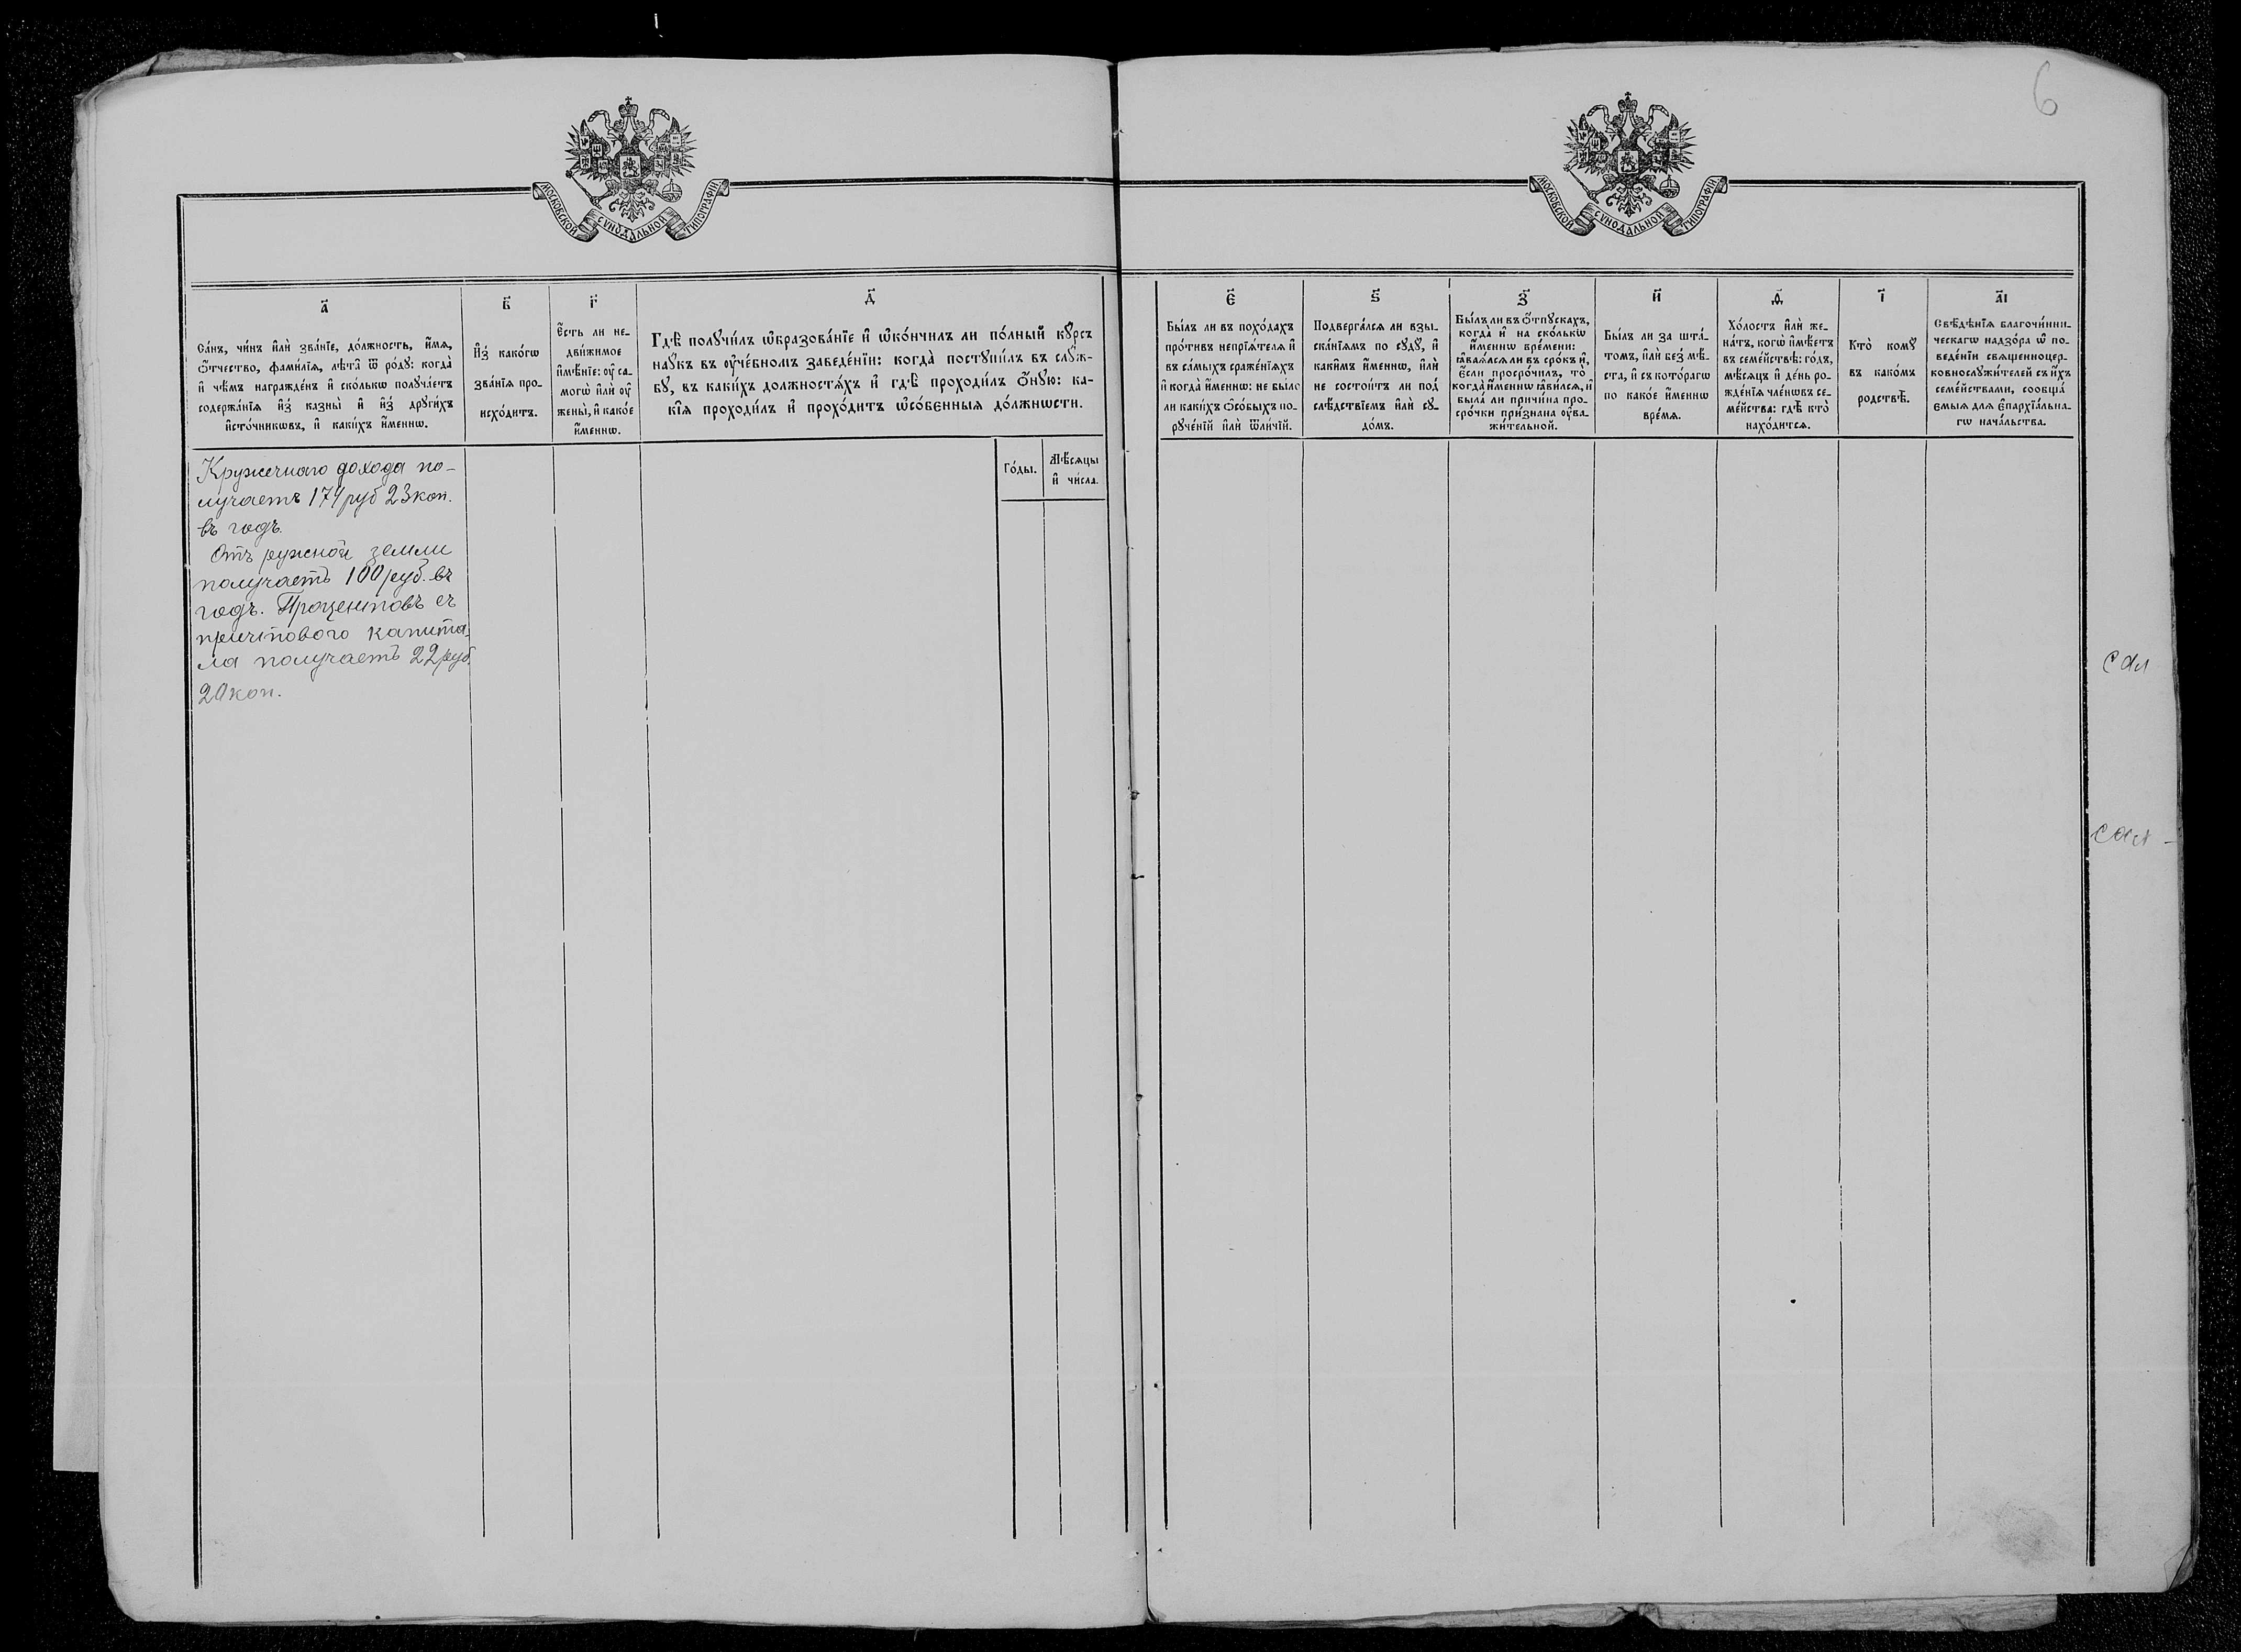 6
МОСКОВСКОЙ СУНОДАЛЬНОЙ ТИПОГРАФІИ
МОСКОВСКОЙ СУНОДАЛЬНОЙ ТИПОГРАФІИ
а҃
Са́нъ, чи́нъ и҆лѝ зва́нїе, до́лжность, и҆́мѧ,
ѻ҆́тчество, фами́лїѧ, лѣ́та ѿ ро́дꙋ: когда̀
и҆ чѣ́мъ награжде́нъ и҆ ско́лькѡ полꙋча́етъ
содержа́нїѧ и҆з̾ казны̀ и҆ и҆з̾ дрꙋги́хъ
и҆сто́чникѡвъ, и҆ каки́хъ и҆́меннѡ.
в҃
И҆з̾ како́гѡ
зва́нїѧ про-
исхо́дитъ.
г҃
Є҆́сть ли не-
дви́жимое
и҆мѣ́нїе: ᲂу҆ са-
могѡ̀ и҆лѝ ᲂу҆
жены̀, и҆ како́е
и҆́меннѡ.
д҃
Гдѣ̀ полꙋчи́лъ ѡ҆бразова́нїе и҆ ѡ҆ко́нчилъ ли по́лный кꙋ́рсъ
наꙋ́къ въ ᲂу҆че́бномъ заведе́нїи: когда̀ постꙋпи́лъ въ слꙋ́ж-
бꙋ, въ каки́хъ должностѧ́хъ и҆ гдѣ̀ проходи́лъ ѻ҆́нꙋю: ка-
кі́ѧ проходи́лъ и҆ прохо́дитъ ѡ҆со́бєнныѧ до́лжнѡсти.
Го́ды.
Мѣ́сѧцы
и҆ чи́сла.
є҃
Бы́лъ ли въ похо́дахъ
про́тивъ непрїѧ́телѧ и҆
въ са́мыхъ сраже́нїѧхъ
и҆ когда̀ и҆́меннѡ: не было
ли каки́хъ ѻ҆со́быхъ по-
рꙋче́нїй и҆лѝ ѿли́чїй.
ѕ҃
Подверга́лсѧ ли взы-
ска́нїѧмъ по сꙋдꙋ̀, и҆
каки́мъ и҆́меннѡ, и҆лѝ
не состои́тъ ли под̾
слѣ́дствїемъ и҆лѝ сꙋ-
до́мъ.
з҃
Бы́лъ ли въ ѻ҆́тпꙋскахъ,
когда̀ и҆ на ско́лькѡ
и҆́меннѡ вре́мени:
ꙗ҆влѧ́лсѧ ли въ сро́къ и҆,
є҆́сли просро́чилъ, то̀
когда̀ и҆́меннѡ ꙗ҆ви́лсѧ, и҆
была̀ ли причи́на про-
сро́чки при́знана ᲂу҆ва-
жи́тельной.
и҃
Бы́лъ ли за шта́-
томъ, и҆лѝ без̾ мѣ́-
ста, и҆ съ кото́рагѡ
по како́е и҆́меннѡ
вре́мѧ.
ѳ҃
Хо́лостъ и҆лѝ же-
на́тъ, когѡ̀ и҆мѣ́етъ
въ семе́йствѣ: го́дъ,
мѣ́сѧцъ и҆ де́нь ро-
жде́нїѧ чле́нѡвъ се-
ме́йства: гдѣ̀ кто̀
нахо́дитсѧ.
і҃
Кто̀ комꙋ̀
въ како́мъ
родствѣ̀.
а҃і
Свѣ́дѣнїѧ благочи́нни-
ческагѡ надзо́ра ѡ҆ по-
веде́нїи свѧщенноцер-
ковнослꙋжи́телей съ и҆́хъ
семе́йствами, сообща́-
ємыѧ длѧ є҆парха́льна-
гѡ нача́льства.
Кружечнаго дохода по-
лучаетъ 174 руб 23 коп.
въ годъ.
Отъ ружной земли
получаетъ 100 руб. въ
годъ. Процентовъ съ
причтового капита-
ла получаетъ 22 руб.
20 коп.